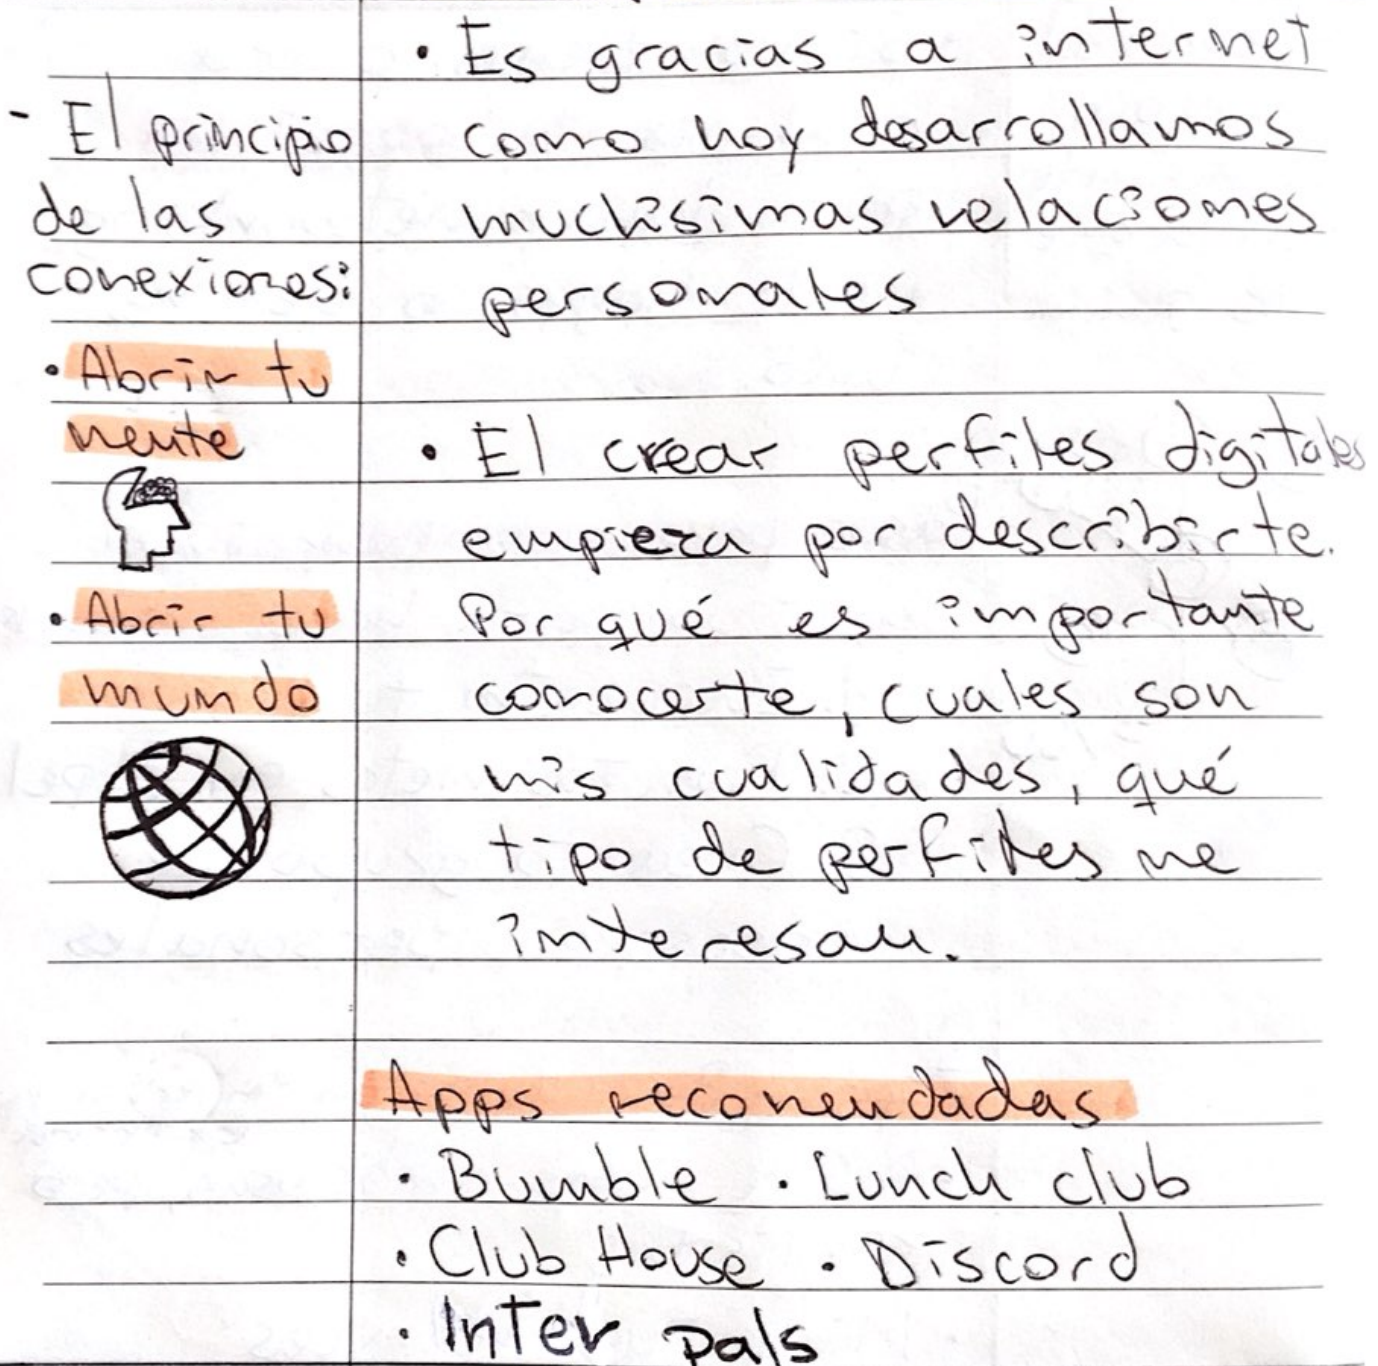 - El principio
de las
conexiones:
· Abrir tu
mente
· Abrir tu
mundo
· Es gracias a internet
como hoy desarrollamos
muchisimas relaciones
personales
· El crear perfiles digitales
empieza por describirte.
Por qué es importante
conocerte, cuales son
mis cualidades, qué
tipo de perfiles me
interesan.
Apps recomendadas
· Bumble · Lunch club
· Club House · Discord
· Inter pals